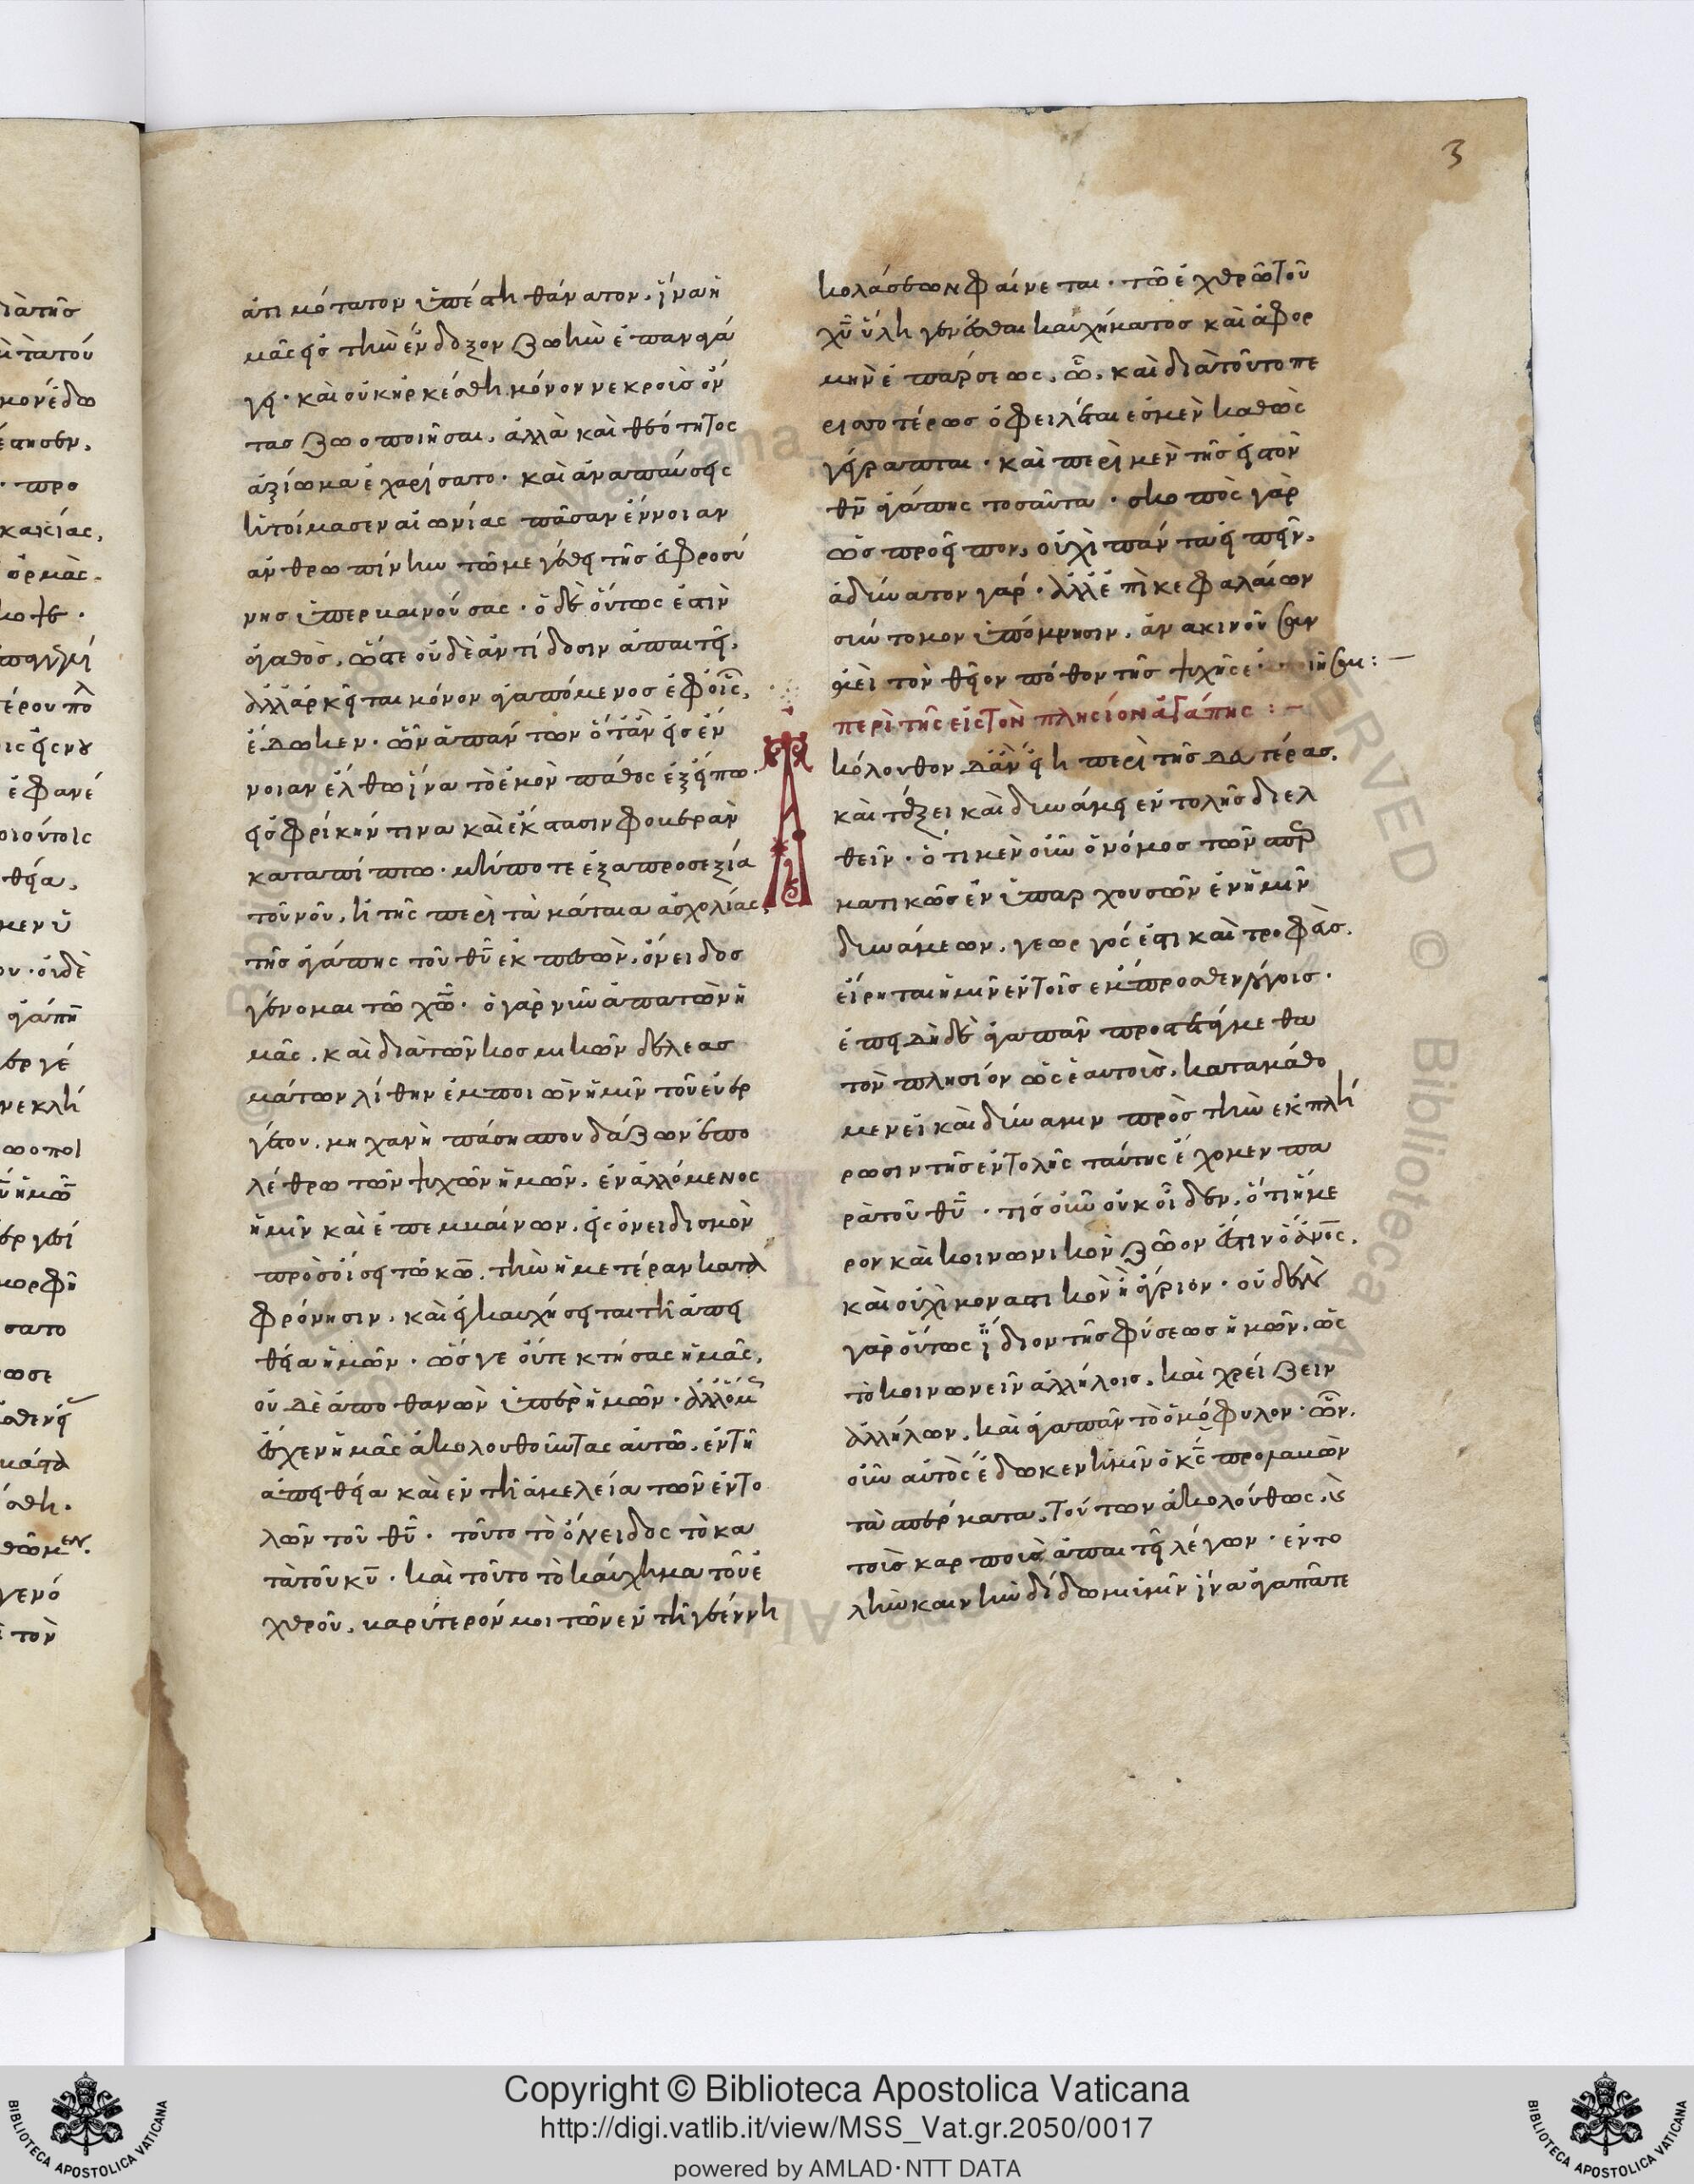 3
ἀτιμότατον ὑπέστη θάνατον, ἵνα ἡ
μᾶς εἰς τὴν ἔνδοξον ζωὴν ἐπαναγά
γῃ· καὶ οὐκ ἠρκέσθη μόνον νεκροὺς ὄν
τας ζωοποιῆσαι, ἀλλὰ καὶ θεότητος
ἀξίωμα ἐχαρίσατο· καὶ ἀναπαύσεις
ἡτοίμασεν αἰωνίας πᾶσαν ἔννοιαν
ἀνθρωπίνην τῷ μεγέθει τῆς εὐφροσύ
νης ὑπερβαινούσας· ὁ δὲ οὕτως ἐστὶν
ἀγαθὸς, ὥστε οὐδὲ ἀντίδοσιν ἀπαιτεῖ,
ἀλλ' ἀρκεῖται μόνον ἀγαπώμενος ἐφ' οἷς
ἔδωκεν· ὧν ἁπάντων ὅταν εἰς ἔν
νοιαν ἔλθω ἵνα τὸ ἐμὸν πάθος ἐξείπω
εἰς φρίκην τινα καὶ ἔκστασιν φοβερὰν
καταπίπτω· μήποτε ἐξ ἀπροσεξία
τοῦ νοῦ, ἢ τῆς περὶ τὰ μάταια ἀσχολίας,
τῆς ἀγάπης τοῦ θυ ἐκπεσὼν, ὄνειδος
γένωμαι τῷ χω· ὁ γὰρ νῦν ἀπατῶν ἡ
μᾶς, καὶ διὰ τῶν κοσμικῶν δελεασ
μάτων λήθην ἐμποιῶν ἡμῖν τοῦ εὐερ
γέτου, μηχανῇ πάσῃ σπουδάζων ἐπ' ὀ
λέθρω τῶν ψυχῶν ἡμῶν, ἐναλλόμενος
ἡμῖν καὶ ἐπεμβαίνων, εἰς ὀνειδισμὸν
προσοίσει τῷ κω, τὴν ἡμετέραν κατα
φρόνησιν, καὶ ἐγκαυχήσεται τῇ ἀπει
θεία ἡμῶν· ὥς γε οὔτε κτήσας ἡμᾶς,
οὐδὲ ἀποθανὼν ὑπὲρ ἡμῶν· ἀλλ' ὅμως
ἔσχεν ἡμᾶς ἀκολουθοῦντας αὐτῷ, ἐν τῇ
ἀπειθεία καὶ ἐν τῇ ἀμελεία τῶν ἐντο
λῶν τοῦ θυ· τοῦτο τὸ ὄνειδος τὸ κα
τὰ τοῦ κυ· καὶ τοῦτο τὸ καύχημα τοῦ ἐ
χθροῦ, βαρύτερόν μοι τῶν ἐν τῇ γεέννῃ
κολάσεων φαίνεται· τῷ ἐχθρῷ τοῦ
χυ ὕλη γενέσθαι καυχήματος καὶ ἀφορ
μὴν ἐπάρσεως, καὶ διὰ τοῦτο πε
ρισσοτέρως ὀφειλέται ἐσμὲν καθὼς
γέγραπται· καὶ περὶ μὲν τῆς εἰς τὸν
θν ἀγάπης τοσαῦτα· σκοπὸς γὰρ
ὡς προεῖπον, οὐχὶ πάντα εἰπεῖν,
ἀδύνατον γάρ· ἀλλ' ἐπὶ κεφαλαίων
σύντομον ὑπόμνησιν, ἀνακινοῦσαν
ἀεὶ τὸν θεῖον πόθον τῆς ψυχῆς
περὶ τῆς εἰς τὸν πλησίον ἀγάπης :–
Ἀκόλουθον δ' ἂν εἴη περὶ τῆς δευτέρας,
καὶ τάξει καὶ δυνάμει ἐντολῆς διελ
θεῖν· ὅτι μὲν οὖν ὁ νόμος τῶν σπερ
ματικῶς ἐνυπαρχουσῶν ἐν ἡμῖν
δυνάμεων, γεωργός ἐστι καὶ τροφεὺς.
εἴρηται ἡμῖν ἐν τοῖς ἔμπροσθεν λόγοις·
ἐπειδὴ δὲ ἀγαπᾶν προστετάγμεθα
τὸν πλησίον ὡς ἑαυτοὺς, καταμάθω
μεν εἰ καὶ δύναμιν πρὸς τὴν ἐκπλή
ρωσιν τῆς ἐντολῆς ταύτης ἔχομεν πα
ρὰ τοῦ θυ· τίς οὖν οὐκ οἶδεν, ὅτι ἥμε
ρον καὶ κοινωνικὸν ζῶον ἐστιν ὁ ἄνος,
καὶ οὐχὶ μοναστικὸν ἢ ἄγριον· οὐδὲν
γὰρ οὕτως ἴδιον τῆς φύσεως ἡμῶν, ὡς
τὸ κοινωνεῖν ἀλλήλοις, καὶ χρήζειν
ἀλλήλων, καὶ ἀγαπᾶν τὸ ὁμόφυλον· ὧν
οὖν αὐτὸς ἔδωκεν ἡμῖν ὁ κς προλαβὼν
τὰ σπέρματα, τούτων ἀκολούθως, καὶ
τοὺς καρποὺς ἀπαιτεῖ λέγων· ἐντο
λὴν καινὴν δίδωμι ὑμῖν ἵνα ἀγαπᾶτε
Copyright © Biblioteca Apostolica Vaticana
http://digi.vatlib.it/view/MSS_Vat.gr.2050/0017
powered by AMLAD·NTT DATA